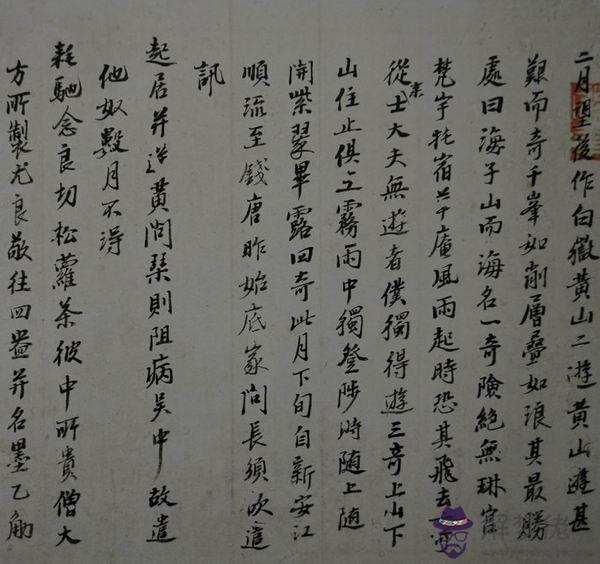 二月望後作白嶽黃山二遊黃山遊甚
艱而奇千峯如削層疊如浪其最勝
處曰海子山而海名一奇險絕無琳宮
梵宇托宿庵風雨起時恐其飛去一
從來士大夫無遊者僕獨得遊三奇上山下
山住止俱立霧雨中獨登陟時随上随
開紫翠畢露四奇此月下旬自新安江
順流至錢唐昨始底家問長須欲遣
訊
起居并送黃問琹則阻病吳中故遣
他奴數月不淂
耗馳念良切松蘿茶彼中所貴僧大
方所製尤良敬往四并名墨乙觔